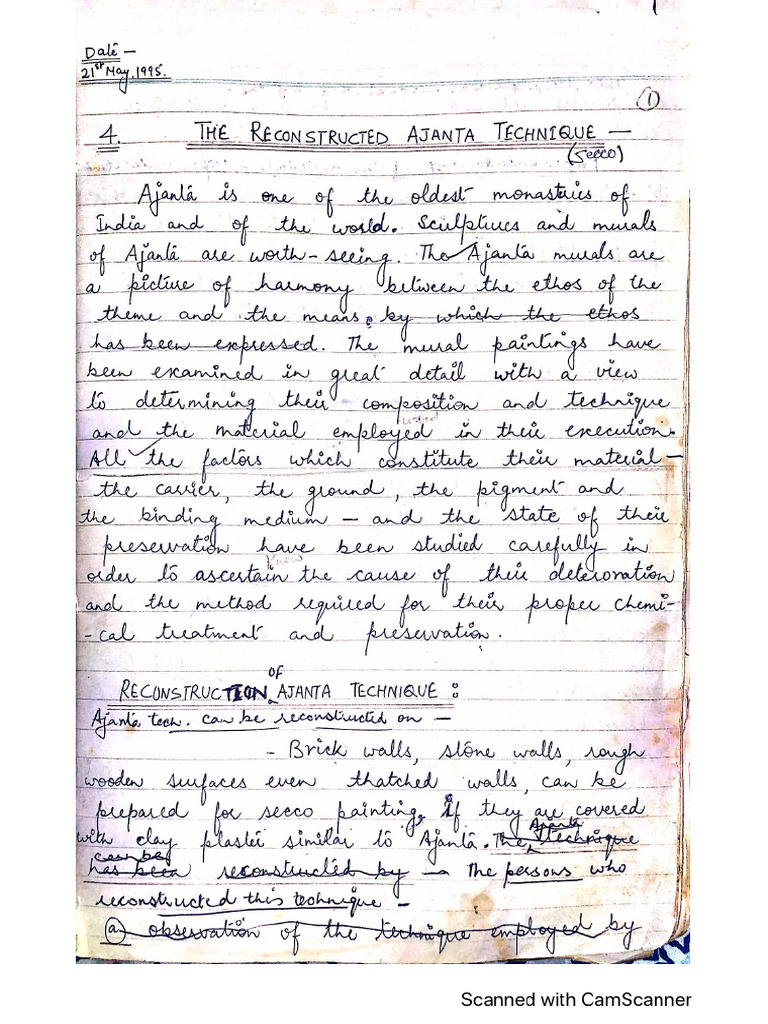 Date —
21st May, 1995.
①
4. THE RECONSTRUCTED AJANTA TECHNIQUE —
(secco)
Ajanta is one of the oldest monasteries of
India and of the world. Sculptures and murals
of Ajanta are worth-seeing. The Ajanta murals are
a picture of harmony between the ethos of the
theme and the means by which the ethos
has been expressed. The mural paintings have
been examined in great detail with a view
to determining their composition and technique
and the material employed in their execution.
All the factors which constitute their material —
the carrier, the ground, the pigment and
the binding medium — and the state of their
preservation have been studied carefully in
know
order to ascertain the cause of their deteroration
and the method required for their proper chemi-
-cal treatment and preservation.
of
RECONSTRUCTION AJANTA TECHNIQUE :
Ajanta tech. can be reconstructed on —
- Brick walls, stone walls, rough
wooden surfaces even thatched walls, can be
prepared for secco painting, if they are covered
Ajanta
with clay plaster similar to Ajanta. The technique
can be
has been reconstructed by — The persons who
reconstructed this technique —
(a) observation of the technique employed by
Scanned with CamScanner